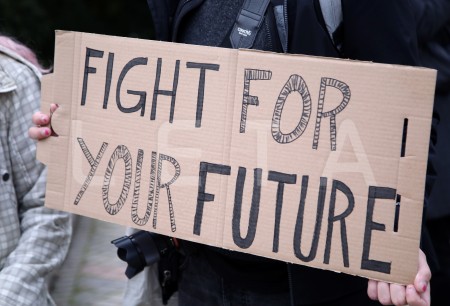 FIGHT FOR
YOUR FUTURE
LETA